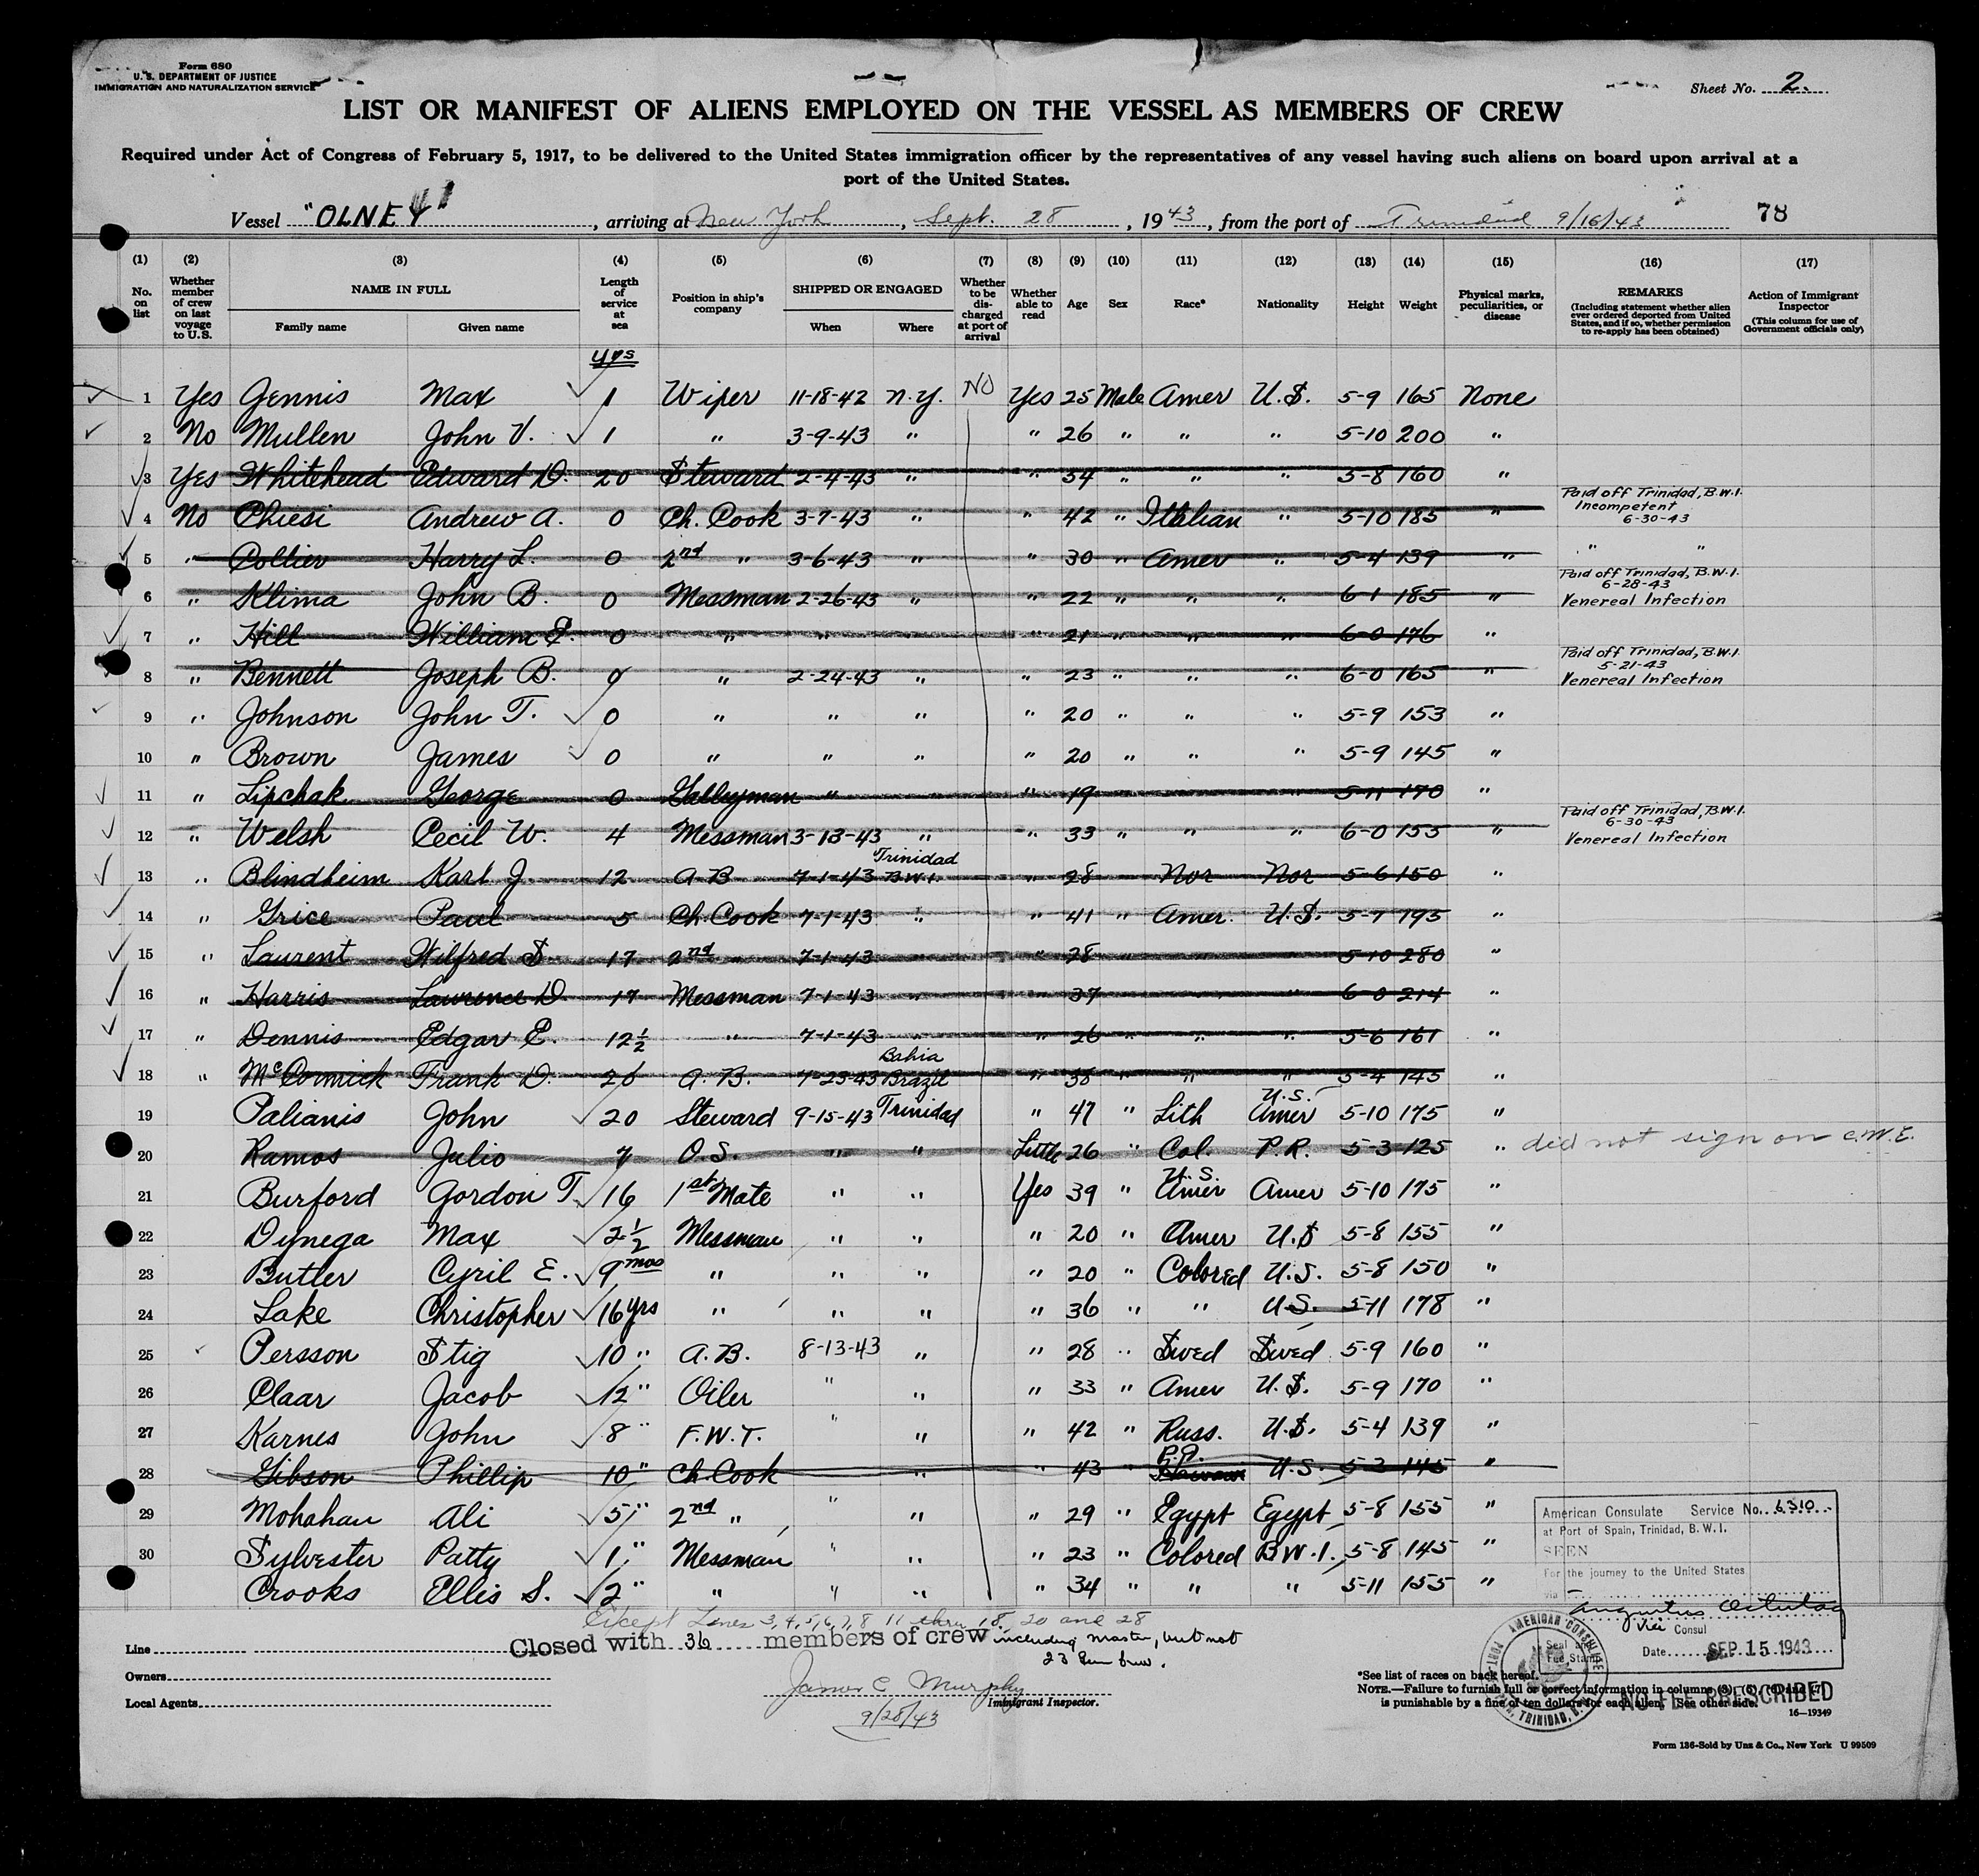 Form 680
U. S. DEPARTMENT OF JUSTICE
IMMIGRATION AND NATURALIZATION SERVICE
Sheet No. 2.
LIST OR MANIFEST OF ALIENS EMPLOYED ON THE VESSEL AS MEMBERS OF CREW
Required under Act of Congress of February 5, 1917, to be delivered to the United States immigration officer by the representatives of any vessel having such aliens on board upon arrival at a
port of the United States.
Vessel "OLNEY", arriving at New York, Sept. 28, 1943, from the port of Trinidad 9/16/43 78
(1) (2) (3) (4) (5) (6) (7) (8) (9) (10) (11) (12) (13) (14) (15) (16) (17)
No. on list
Whether member of crew on last voyage to U.S.
NAME IN FULL
Family name Given name
Length of service at sea
Position in ship's company
SHIPPED OR ENGAGED
When Where
Whether to be discharged at port of arrival
Whether able to read
Age
Sex
Race*
Nationality
Height
Weight
Physical marks, peculiarities, or disease
REMARKS
(Including statement whether alien ever ordered deported from United States, and if so, whether permission to re-apply has been obtained)
Action of Immigrant Inspector
(This column for use of Government officials only)
yrs
1 Yes Jennis Max 1 Wiper 11-18-42 N.Y. NO Yes 25 Male Amer U.S. 5-9 165 None
2 No Mullen John V. 1 " 3-9-43 " " 26 " " " 5-10 200 "
3 Yes Whitehead Edward D. 20 Steward 2-4-43 " " 54 " " " 5-8 160 "
4 No Chiesi Andrew A. 0 Ch. Cook 3-7-43 " " 42 " Italian " 5-10 185 " Paid off Trinidad, B.W.I. Incompetent 6-30-43
5 " Collier Harry L. 0 2nd " 3-6-43 " " 30 " Amer " 5-4 139 " " "
6 " Klima John B. 0 Messman 2-26-43 " " 22 " " " 6-1 185 " Paid off Trinidad, B.W.I. 6-28-43 Venereal Infection
7 " Hill William E. 0 " " " 21 " " 6-0 176 "
8 " Bennett Joseph B. 0 " 2-24-43 " " 23 " " " 6-0 165 " Paid off Trinidad, B.W.I. 5-21-43 Venereal Infection
9 " Johnson John T. 0 " " " " 20 " " " 5-9 153 "
10 " Brown James 0 " " " " 20 " " " 5-9 145 "
11 " Lipchak George 0 Galleyman " " " 19 " 5-11 170 "
12 " Welsh Cecil W. 4 Messman 3-13-43 " " 33 " " " 6-0 155 " Paid off Trinidad, B.W.I. 6-30-43 Venereal Infection
13 " Blindheim Karl J. 12 A.B. 7-1-43 Trinidad B.W.I. " 28 Nor Nor 5-6 150 "
14 " Grice Paul 5 Ch. Cook 7-1-43 " " 41 " Amer. U.S. 5-7 195 "
15 " Laurent Wilfred S. 17 2nd " 7-1-43 " " 28 " " 5-10 280 "
16 " Harris Lawrence D. 17 Messman 7-1-43 " " 37 " 6-0 214 "
17 " Dennis Edgar E. 12½ " 7-1-43 " " 26 " " " 5-6 161 "
18 " McCormick Frank D. 26 A.B. 7-23-43 Bahia Brazil " 38 " " " 5-4 145 "
19 Palianis John 20 Steward 9-15-43 Trinidad " 47 " Lith U.S. Amer 5-10 175 "
20 Ramos Julio 7 O.S. " " Little 26 " Col. P.R. 5-3 125 " did not sign on C.M.E.
21 Burford Gordon T. 16 1st Mate " " Yes 39 " U.S. Amer Amer 5-10 175 "
22 Dynega Max 2½ Messman " " " 20 " Amer U.S 5-8 155 "
23 Butler Cyril E. 9 mos " " " " 20 " Colored U.S. 5-8 150 "
24 Lake Christopher 16 yrs " " " " 36 " " U.S. 5-11 178 "
25 Persson Stig 10 " A.B. 8-13-43 " " 28 " Swed Swed 5-9 160 "
26 Claar Jacob 12 " Oiler " " " 33 " Amer U.S. 5-9 170 "
27 Karnes John 8 " F.W.T. " " " 42 " Russ. U.S. 5-4 139 "
28 Gibson Phillip 10 " Ch. Cook " " 43 " U.S. 5-3 145 "
29 Mohahan Ali 5 " 2nd " " " " 29 " Egypt Egypt 5-8 155 "
30 Sylvester Patty 1 " Messman " " " 23 " Colored B.W.I. 5-8 145 "
Crooks Ellis S. 2 " " " " " 34 " " " 5-11 155 "
Except Lines 3, 4, 5, 6, 7, 8, 11 thru 18, 20 and 28
Closed with 36 members of crew including master, but not
23
Line
Owners
Local Agents
James C Murphy
Immigrant Inspector.
9/28/43
American Consulate Service No. 6310
at Port of Spain, Trinidad, B. W. I.
SEEN
For the journey to the United States
via
Consul
Seal and Fee Stamp
Date SEP 15 1943
AMERICAN CONSULATE
TRINIDAD, B.W.I.
NO FEE PRESCRIBED
*See list of races on back hereof.
NOTE.—Failure to furnish full or correct information in columns (3), (5), (6) and (7)
is punishable by a fine of ten dollars for each alien. See other side.
16—19349
Form 136-Sold by Unz & Co., New York U 99509